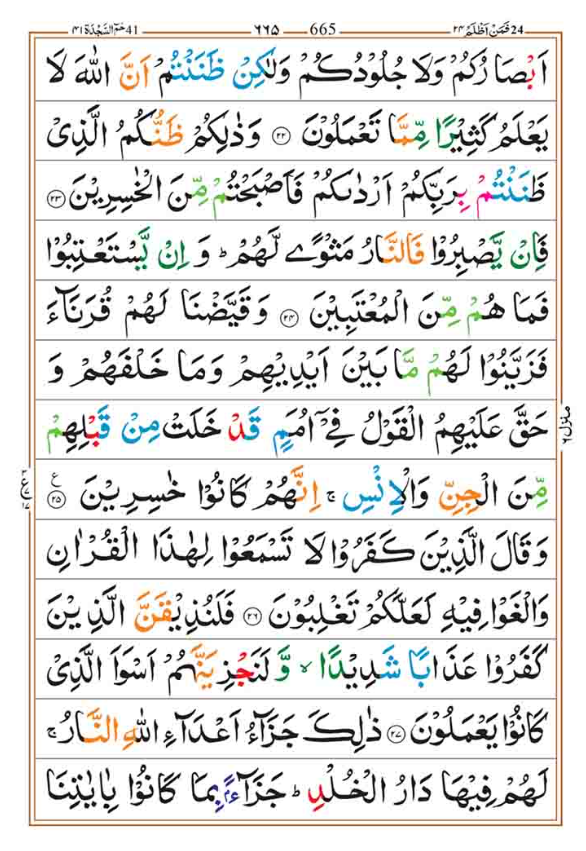 حٰمٓ السَّجْدَة ٤١ 41 ٦٦٥ 665 فَمَنْ اَظْلَمُ ٢٤ 24
اَبْصَارُكُمْ وَلَا جُلُوْدُكُمْ وَلٰكِنْ ظَنَنْتُمْ اَنَّ اللّٰهَ لَا
يَعْلَمُ كَثِيْرًا مِّمَّا تَعْمَلُوْنَ ﴿٢٢﴾ وَذٰلِكُمْ ظَنُّكُمُ الَّذِىْ
ظَنَنْتُمْ بِرَبِّكُمْ اَرْدٰىكُمْ فَاَصْبَحْتُمْ مِّنَ الْخٰسِرِيْنَ ﴿٢٣﴾
فَاِنْ يَّصْبِرُوْا فَالنَّارُ مَثْوًى لَّهُمْ ؕ وَ اِنْ يَّسْتَعْتِبُوْا
فَمَا هُمْ مِّنَ الْمُعْتَبِيْنَ ﴿٢٤﴾ وَقَيَّضْنَا لَهُمْ قُرَنَآءَ
فَزَيَّنُوْا لَهُمْ مَّا بَيْنَ اَيْدِيْهِمْ وَمَا خَلْفَهُمْ وَ
حَقَّ عَلَيْهِمُ الْقَوْلُ فِىْۤ اُمَمٍ قَدْ خَلَتْ مِنْ قَبْلِهِمْ
مِّنَ الْجِنِّ وَالْاِنْسِ ۚ اِنَّهُمْ كَانُوْا خٰسِرِيْنَ ﴿٢٥﴾ ع
وَقَالَ الَّذِيْنَ كَفَرُوْا لَا تَسْمَعُوْا لِهٰذَا الْقُرْاٰنِ
وَالْغَوْا فِيْهِ لَعَلَّكُمْ تَغْلِبُوْنَ ﴿٢٦﴾ فَلَنُذِيْقَنَّ الَّذِيْنَ
كَفَرُوْا عَذَابًا شَدِيْدًا ۙ وَّلَنَجْزِيَنَّهُمْ اَسْوَاَ الَّذِىْ
كَانُوْا يَعْمَلُوْنَ ﴿٢٧﴾ ذٰلِكَ جَزَآءُ اَعْدَآءِ اللّٰهِ النَّارُ ۚ
لَهُمْ فِيْهَا دَارُ الْخُلْدِ ؕ جَزَآءًۢ بِمَا كَانُوْا بِاٰيٰتِنَا
منزل ٦